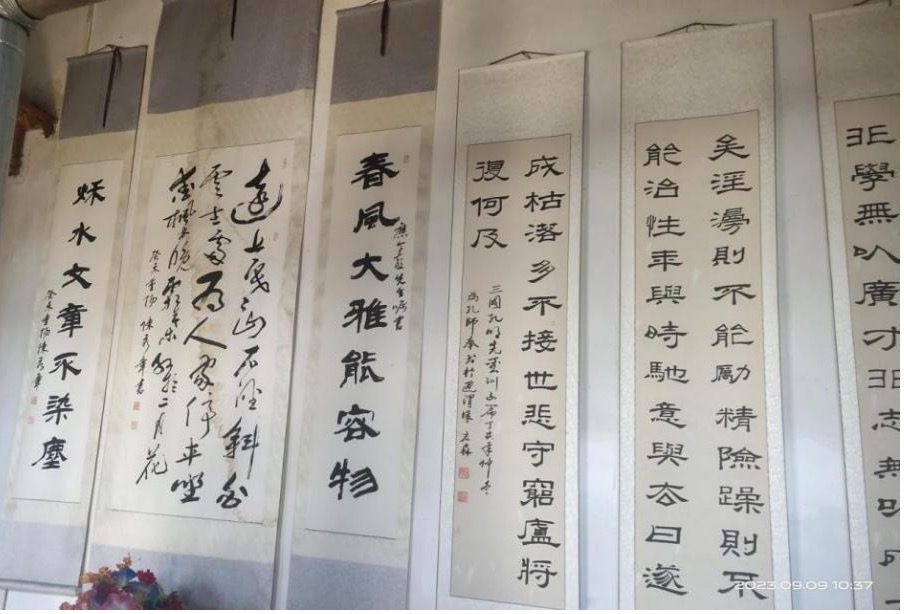 非學無以廣才非志無以
矣淫漫則不能勵精險躁則不
能治性年與時馳意與去日遂
成枯落多不接世悲守窮廬將
復何及
三國孔明先生訓子篇丁丑年仲冬
春風大雅能容物
先生囑書
遠上寒山石径斜白
雲生處有人家停車坐
愛楓林晚霜葉紅於二月花
癸未重陽陳秀章書
秋水文章不染塵
癸未重陽陳秀章
2023.09.09 10:37